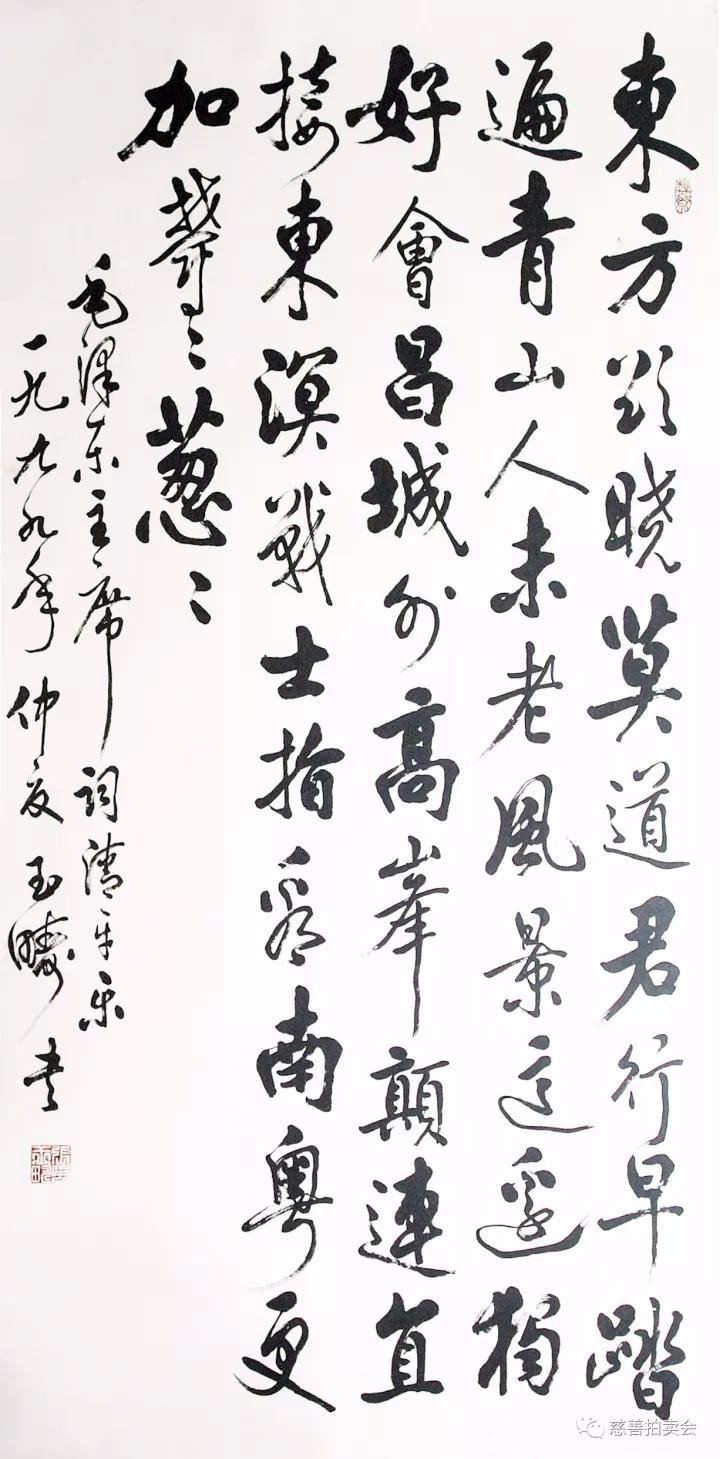 東方欲晓莫道君行早踏
遍青山人未老風景這邊獨
好會昌城外高峯顛連直
接東溟戰士指看南粤更
加鬱〻葱〻
毛泽东主席詞清平乐
一九九九年仲夏玉疇书
慈善拍卖会